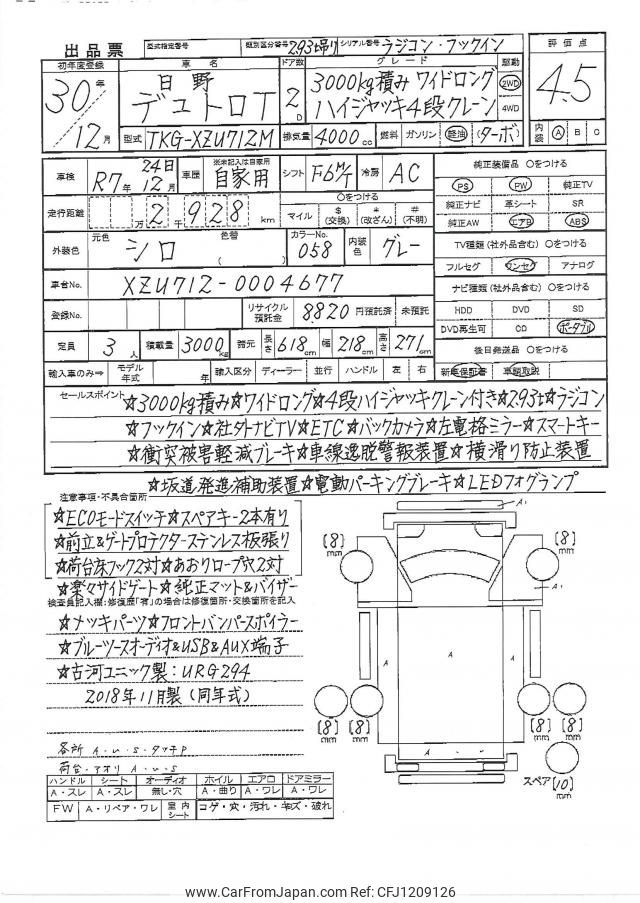 出品票 型式指定番号 類別区分番号 2.93t吊り シリアル番号 ラジコン・フックイン
初年度登録 車名 ドア数 グレード 駆動 評価点
30年 日野 3000kg積み ワイドロング 2WD 4.5
12月 デュトロT 2D ハイジャッキ4段クレーン 4WD
型式 TKG-XZU712M 排気量 4000cc 燃料 ガソリン 軽油 (ターボ) 内装 A B C
車検 R7年 24日 12月 車歴 ※未記入は自家用 自家用 シフト F6M/T 冷房 AC
走行距離 万 2千 928 km マイル $(交換) *(改ざん) #(不明) 〇をつける
外装色 元色 シロ 色替 ( ) カラーNo. 058 内装色 グレー
車台No. XZU712-0004677
登録No. リサイクル預託金 8820 円預託済 未預託
定員 3人 積載量 3000kg 諸元 長さ 618cm 幅 218cm 高さ 271cm
輸入車のみ⇒ モデル年式 年 輸入区分 ディーラー 並行 ハンドル 左 右
純正装備品 〇をつける
PS PW 純正TV
純正ナビ 革シート SR
純正AW エアB ABS
TV種類(社外品含む) 〇をつける
フルセグ ワンセグ アナログ
ナビ種類(社外品含む) 〇をつける
HDD DVD SD
DVD再生可 CD ポータブル
後日発送品 〇をつける
新車保証書 車輌取説
セールスポイント ☆3000kg積み☆ワイドロング☆4段ハイジャッキクレーン付き☆2.93t☆ラジコン
☆フックイン☆社外ナビTV☆ETC☆バックカメラ☆左電格ミラー☆スマートキー
☆衝突被害軽減ブレーキ☆車線逸脱警報装置☆横滑り防止装置
☆坂道発進補助装置☆電動パーキングブレーキ☆LEDフォグランプ
注意事項・不具合箇所
☆ECOモードスイッチ☆スペアキー2本有り
☆前立&ゲートプロテクターステンレス板張り
☆荷台床フック2対☆あおりロープ穴2対
☆楽々サイドゲート☆純正マット&バイザー
検査員記入欄:修復歴「有」の場合は修復箇所・交換箇所を記入
☆メッキパーツ☆フロントバンパースポイラー
☆ブルーツースオーディオ&USB&AUX端子
☆古河ユニック製:URG294
2018年11月製(同年式)
各所 A・U・S・タッチP
荷台・アオリ A・U・S
ハンドル シート オーディオ ホイル エアロ ドアミラー
A・スレ A・スレ 無し・穴 A・曲り A・ワレ A・ワレ
FW A・リペア・ワレ 室内シート コゲ・穴・汚れ・キズ・破れ
A・
[8]mm [8]mm
A・
A A・ A
[8]mm [8]mm [8]mm [8]mm
A
スペア [10]mm
www.CarFromJapan.com Ref: CFJ1209126